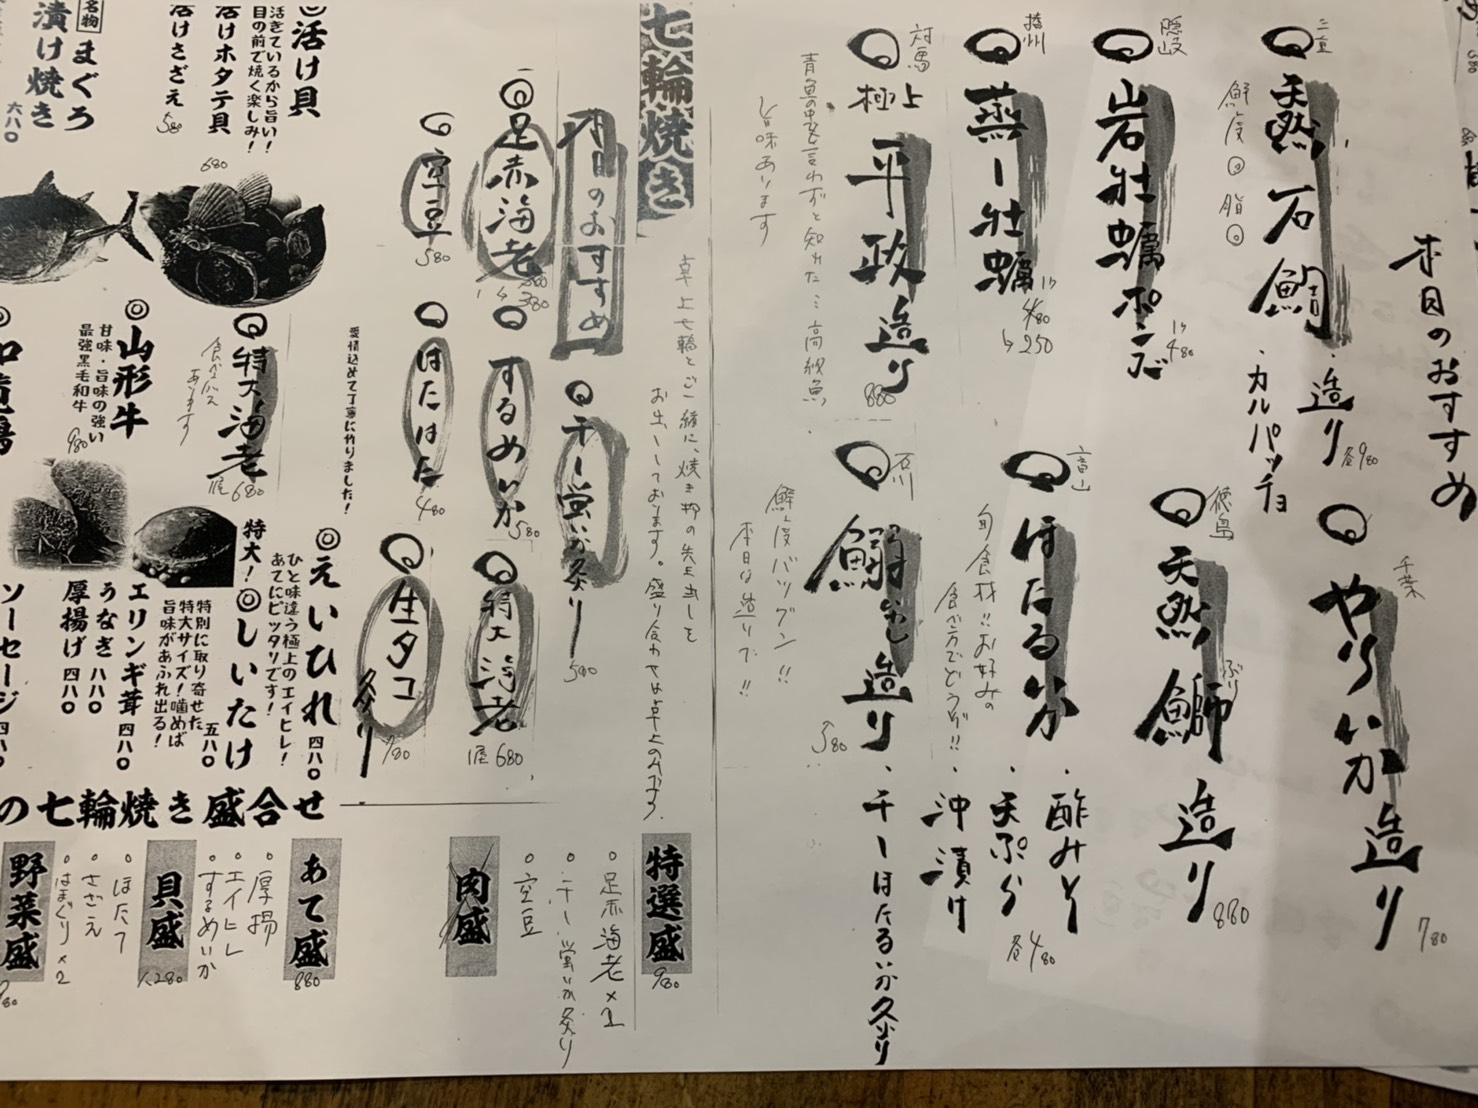 本日のおすすめ
三重
天然 石鯛
・造り
・カルパッチョ
各980
鮮度◎ 脂◎
千葉
やりいか 造り
780
隠岐
岩牡蠣 ポンズ
1ヶ
480
徳島
天然 鰤 造り
ぶり
880
播州
蒸し牡蠣
1ヶ
480
↳250
富山
ほたるいか
・酢みそ
・天ぷら
・沖漬け
各480
旬食材!!お好みの
食べ方でどうぞ!!
対馬
極上
平政 造り
880
旨味あります
石川
造り
・干しほたるいか炙り
鮮度バツグン!!
本日は造りで!!
七輪焼き
卓上七輪とご一緒に、焼き物の先出しを
お出ししております。盛り合わせは卓上のみです。
本日のおすすめ
◎干し蛍いか炙り
580
◎足赤海老
380
◎するめいか
580
◎特大海老
1尾 680
◎空豆
580
◎はたはた
480
◎生タコ 炙り
780
愛情込めて丁寧に作りました!
◎活け貝
活きているから旨い!
目の前で焼く楽しみ!
活けホタテ貝
680
活けさざえ
580
名物
まぐろ
漬け焼き
六八〇
◎特大海老
1尾 680
食べ方
あります
◎山形牛
甘味・旨味の強い
最強黒毛和牛
980
◎えいひれ 四八〇
ひと味違う極上のエイヒレ!
あてにピッタリです!
特大!◎しいたけ
五八〇
特別に取り寄せた
特大サイズ!噛めば
旨味があふれ出る!
エリンギ茸 四八〇
うなぎ 八八〇
厚揚げ 四八〇
ソーセージ 四八〇
の七輪焼き盛合せ
特選盛
980
・足赤海老×1
・干し蛍いか炙り
・空豆
肉盛
あて盛
880
・厚揚
・エイヒレ
・するめいか
貝盛
1,280
・ほたて
・さざえ
・はまぐり×2
野菜盛